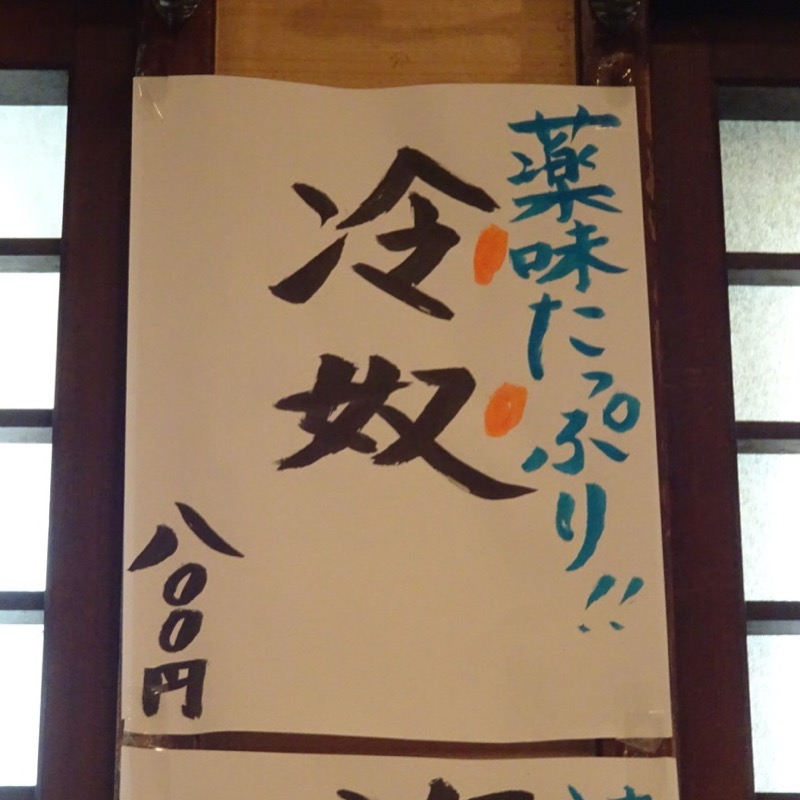 薬味たっぷり!!
冷奴
八〇〇円